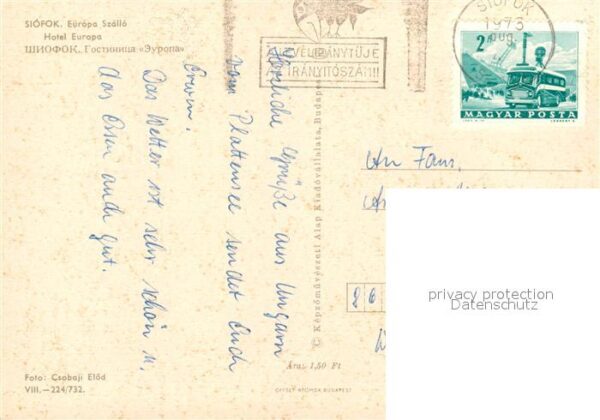 SIÓFOK. Európa Szálló
Hotel Europa
ШИОФОК. Гостиница «Эуропа»
Herzliche Grüße aus Ungarn
vom Plattensee sendet Euch
Erwin.
Das Wetter ist sehr schön u.
das Essen auch gut.
Foto: Csobaji Előd
VIII.—224/732.
© Képzőművészeti Alap Kiadóvállalata, Budapest
Ára: 1,50 Ft
OFFSET-NYOMDA, BUDAPEST
A LEVÉL IRÁNYTŰJE
AZ IRÁNYÍTÓSZÁM!!
SIÓFOK
1973
aug.
2 Ft
MAGYAR POSTA
An Fam.
privacy protection
Datenschutz